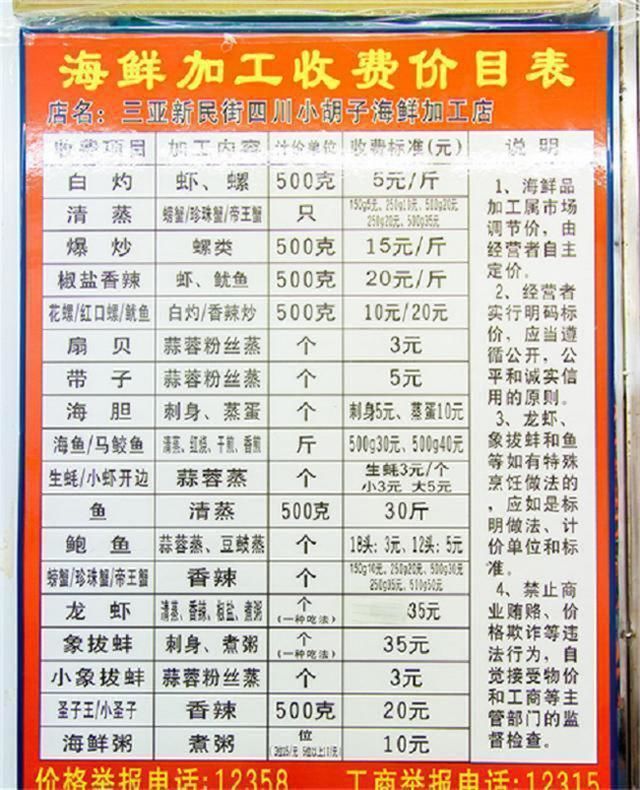 海鲜加工收费价目表
店名：三亚新民街四川小胡子海鲜加工店
收费项目 加工内容 计价单位 收费标准(元) 说明
白灼 虾、螺 500克 5元/斤
清蒸 螃蟹/珍珠蟹/帝王蟹 只 150g5元、250g10元、500g20元
250g20元、500g35元
爆炒 螺类 500克 15元/斤
椒盐香辣 虾、鱿鱼 500克 20元/斤
花螺/红口螺/鱿鱼 白灼/香辣炒 500克 10元/20元
扇贝 蒜蓉粉丝蒸 个 3元
带子 蒜蓉粉丝蒸 个 5元
海胆 刺身、蒸蛋 个 刺身5元、蒸蛋10元
海鱼/马鲛鱼 清蒸、红烧、干煎、香煎 斤 500g30元、500g40元
生蚝/小虾开边 蒜蓉蒸 个 生蚝3元/个
小3元 大5元
鱼 清蒸 500克 30斤
鲍鱼 蒜蓉蒸、豆豉蒸 个 18头:3元、12头:5元
螃蟹/珍珠蟹/帝王蟹 香辣 个 150g10元、250g20元、500g30元
250g35元、510g50元
龙虾 清蒸、香辣、椒盐、煮粥 个
(一种吃法) 35元
象拔蚌 刺身、煮粥 个
(一种吃法) 35元
小象拔蚌 蒜蓉粉丝蒸 个 3元
圣子王/小圣子 香辣 500克 20元
海鲜粥 煮粥 位 10元
1、海鲜品
加工属市场
调节价，由
经营者自主
定价。
2、经营者
实行明码标
价，应当遵
循公开，公
平和诚实信
用的原则。
3、龙虾、
象拔蚌和鱼
等如有特殊
烹饪做法的
，应如是标
明做法、计
价单位和标
准。
4、禁止商
业贿赂、价
格欺诈等违
法行为，自
觉接受物价
和工商等主
管部门的监
督检查。
价格举报电话:12358 工商举报电话:12315